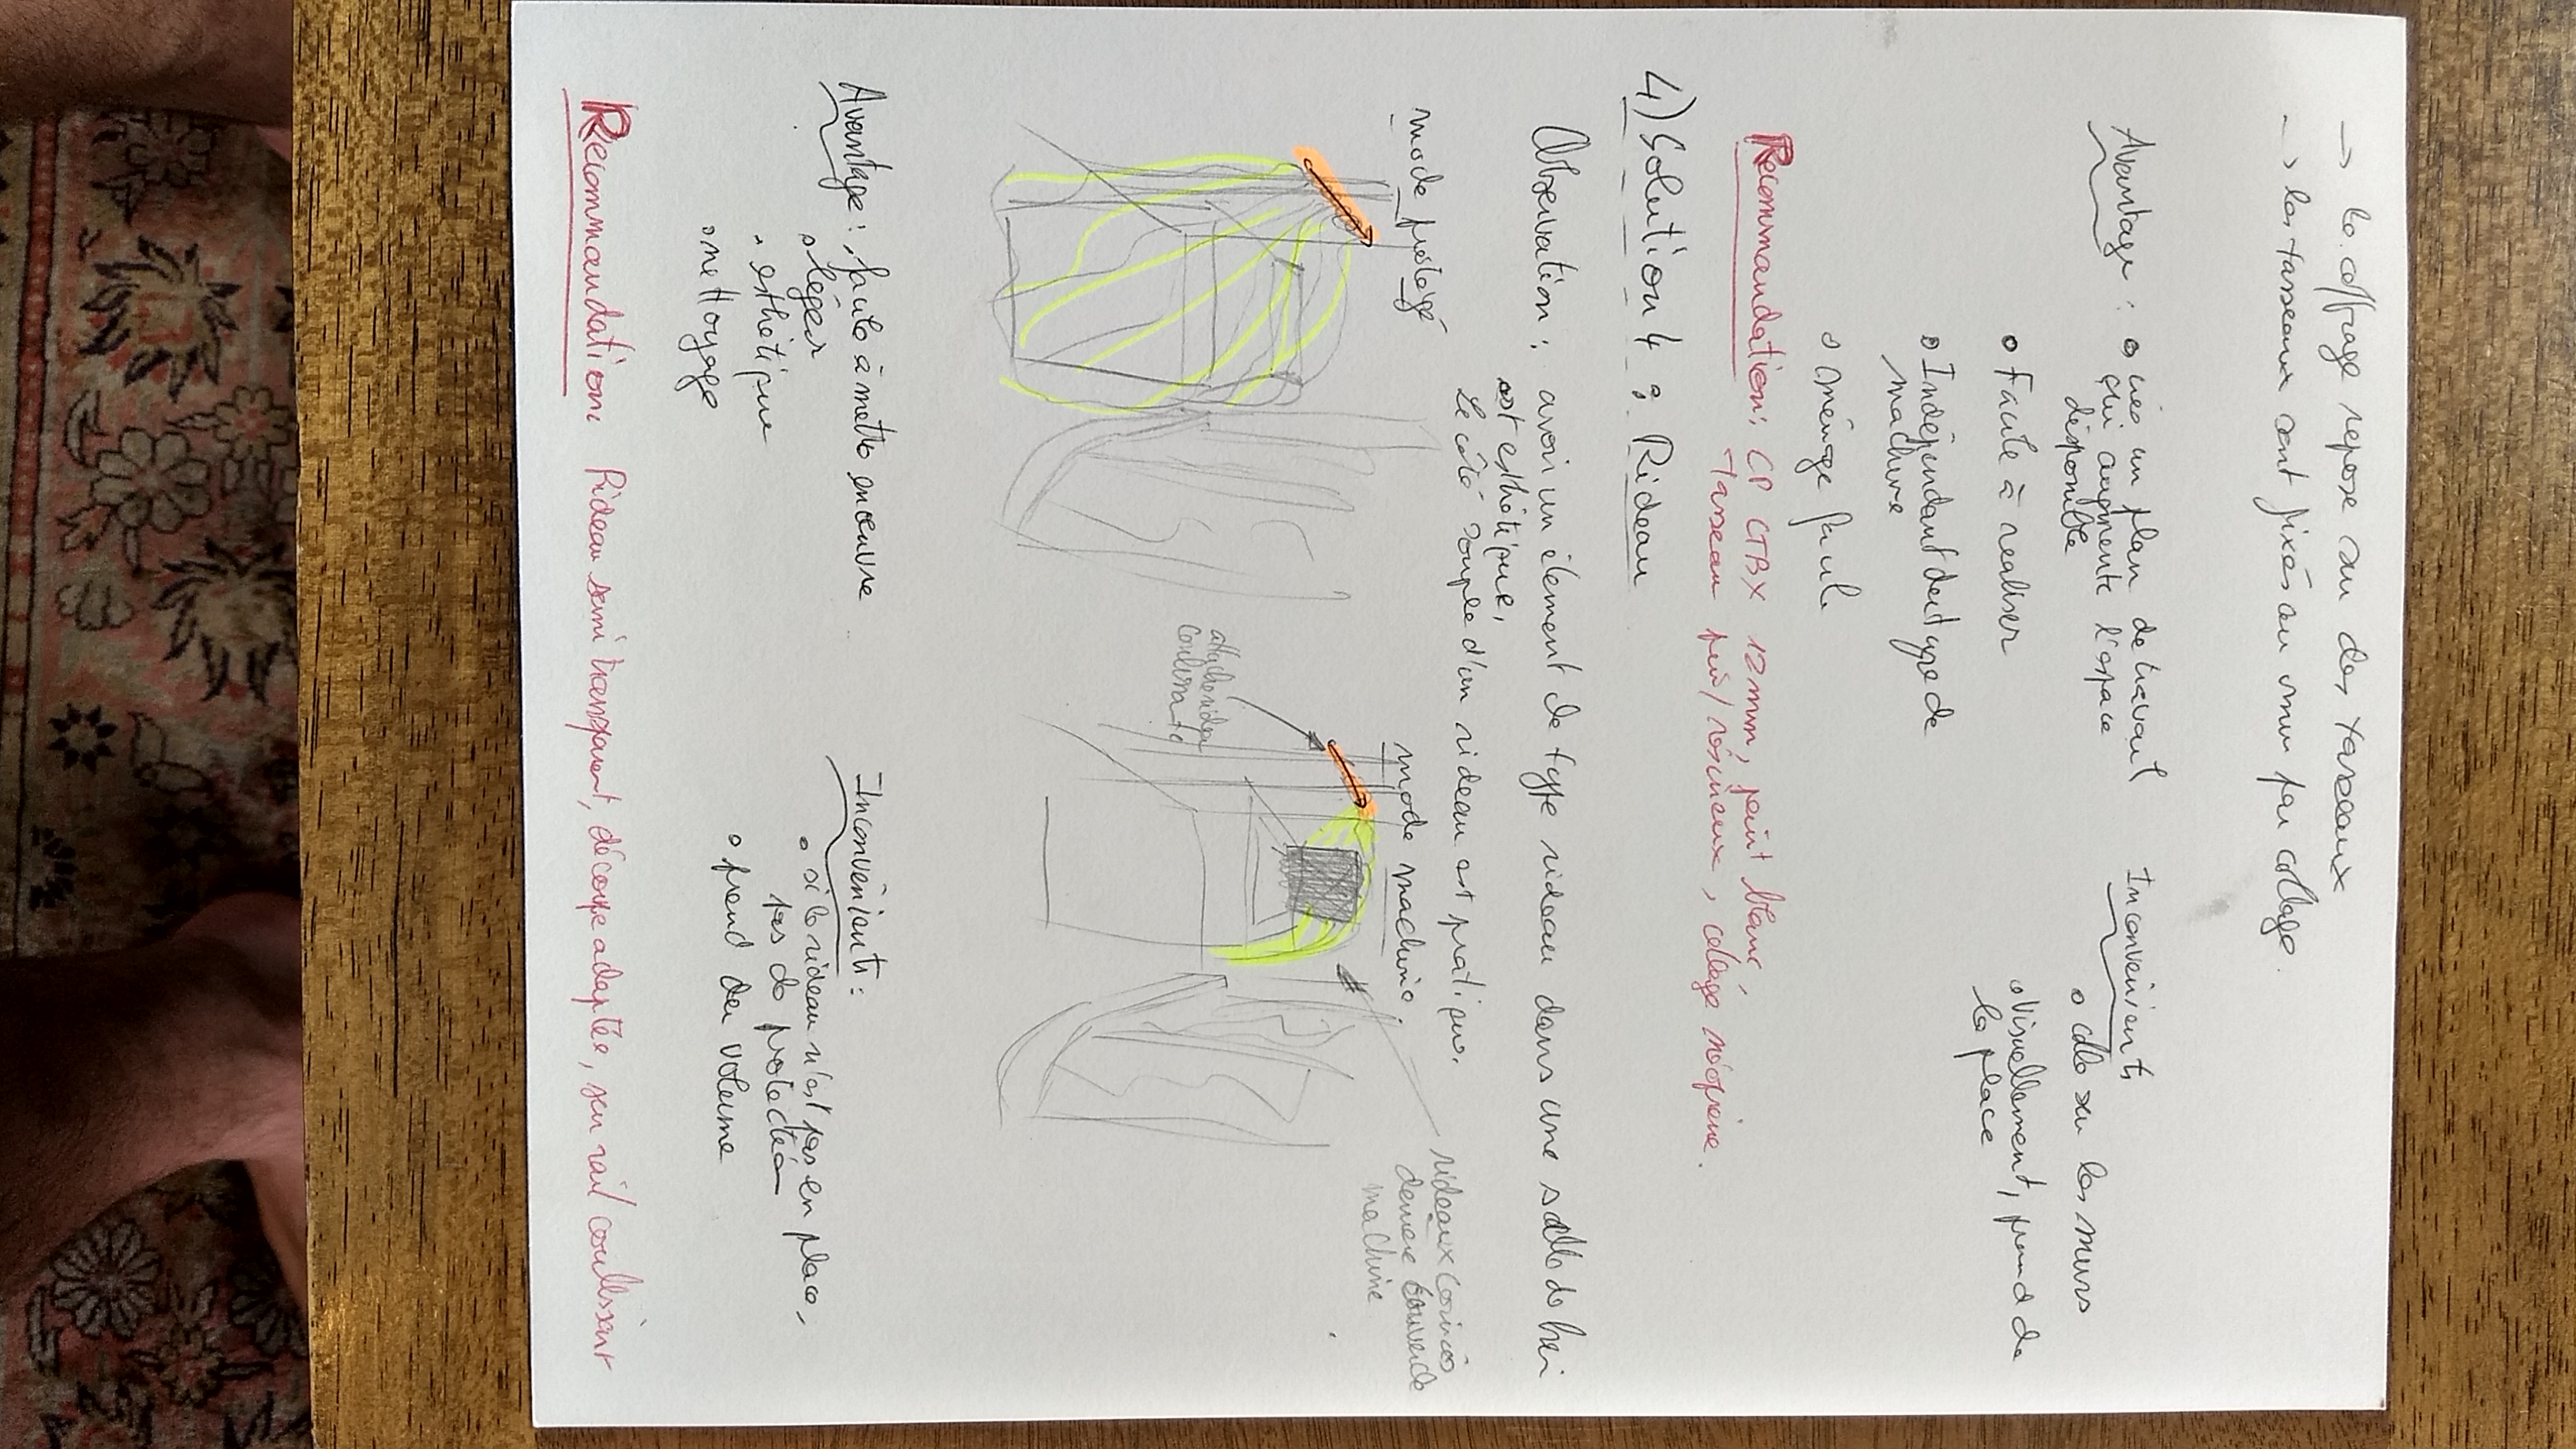 → le coffrage repose sur des tasseaux
→ les tasseaux sont fixés au mur par collage.
Avantage : • crée un plan de travail
qui augmente l'espace
disponible
• Facile à réaliser
• Indépendant du type de
machine
• ménage facile
Inconvénients
• colle sur les murs
• Visuellement, prend de
la place
Recommandation : CP CTBX 12 mm, peint blanc,
tasseau pin/résineux, collage néoprène.
4) Solution 4 : Rideau
Observation : avoir un élément de type rideau dans une salle de bain
est esthétique,
Le côté souple d'un rideau est pratique.
mode protégé
mode machine.
attache rideau
coulissante
rideaux coincés
derrière
machine
Avantage : • facile à mettre en œuvre
• léger
• esthétique
• nettoyage
Inconvénients :
• si le rideau n'est pas en place,
pas de protection
• prend du volume
Recommandation : Rideau semi transparent, découpe adaptée, sur rail coulissant